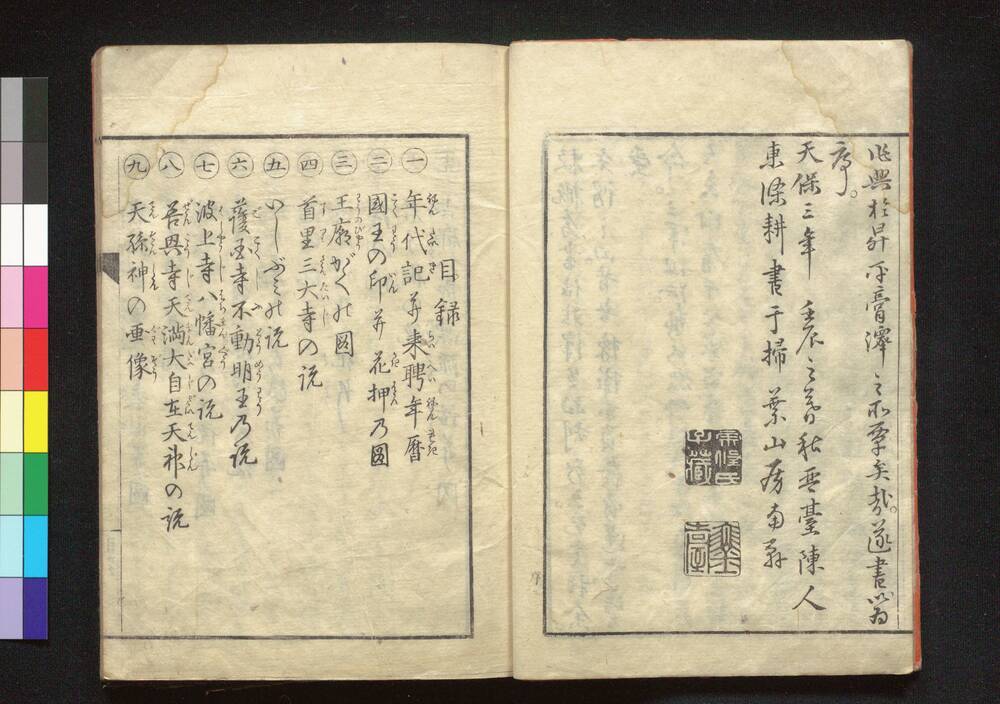 兆興於昇平膏澤之所覃矣哉。遂書以為
序。
天保三年 壬辰之暮秋琴臺陳人
東條耕書于掃葉山房南軒
目録
一 年代記并来聘年暦
二 國王の印并花押乃圖
三 王廟がくの圖
四 首里三大寺の説
五 いしぶミの説
六 護国寺不動明王乃説
七 波上寺八幡宮の説
八 善興寺天満大自在天神の説
九 天孫神の画像